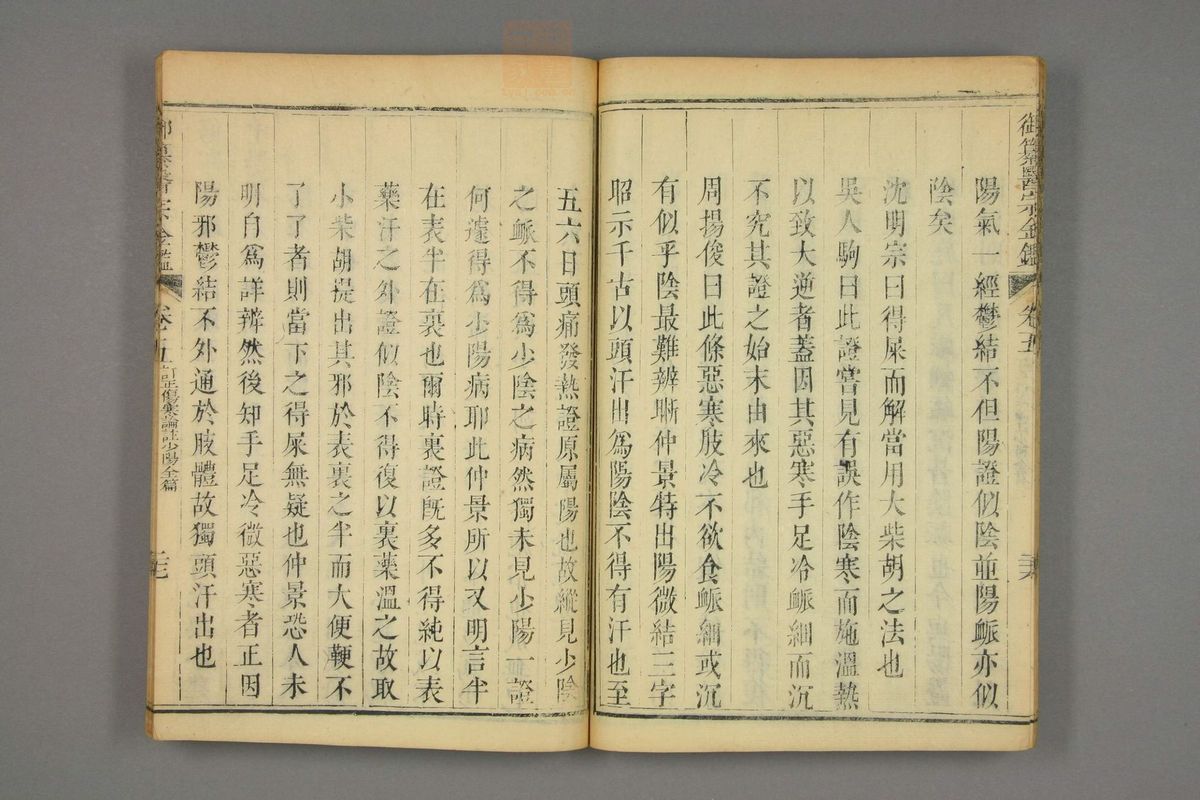 御纂醫宗金鑑 卷五
陽氣一經鬱結不但陽證似陰並陽脈亦似
陰矣
沈明宗曰得屎而解當用大柴胡之法也
吳人駒曰此證嘗見有誤作陰寒而施溫熱
以致大逆者蓋因其惡寒手足冷脈細而沉
不究其證之始末由來也
周揚俊曰此條惡寒肢冷不欲食脈細或沉
有似乎陰最難辨晰仲景特出陽微結三字
昭示千古以頭汗出爲陽陰不得有汗也至
五六日頭痛發熱證原屬陽也故縱見少陰
之脈不得爲少陰之病然獨未見少陽一證
何遽得爲少陽病耶此仲景所以又明言半
在表半在裏也爾時裏證旣多不得純以表
藥汗之外證似陰不得復以裏藥溫之故取
小柴胡提出其邪於表裏之半而大便鞕不
了了者則當下之得屎無疑也仲景恐人未
明自爲詳辨然後知手足冷微惡寒者正因
陽邪鬱結不外通於肢體故獨頭汗出也
御纂醫宗金鑑 卷五 訂正傷寒論註少陽全篇